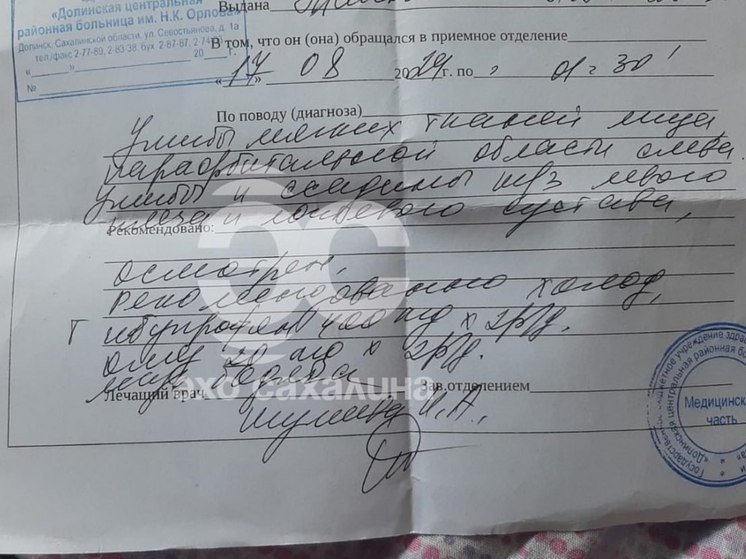 «Долинская центральная
районная больница им. Н.К. Орлова»
Долинск, Сахалинской области, ул. Севостьянова, д. 1а
тел./факс 2-77-89, 2-83-38, бух 2-87-87, 2-74
« » 20 г.
№
Выдана
В том, что он (она) обращался в приемное отделение
« 17 » 08 2024 г. по
По поводу (диагноза)
Ушибы мягких тканей лица,
параорбитальной области слева.
Ушибы и ссадины левого
плеча и локтевого сустава,
Рекомендовано:
осмотрен,
рекомендовано холод,
ибупрофен 400 мг х 2р/д.
20 мг х 2р/д.
эхо сахалина
Лечащий врач
Зав.отделением
И.А.,
Государственное бюджетное учреждение здрав
«Долинская центральная районная бол
Медицинск
часть